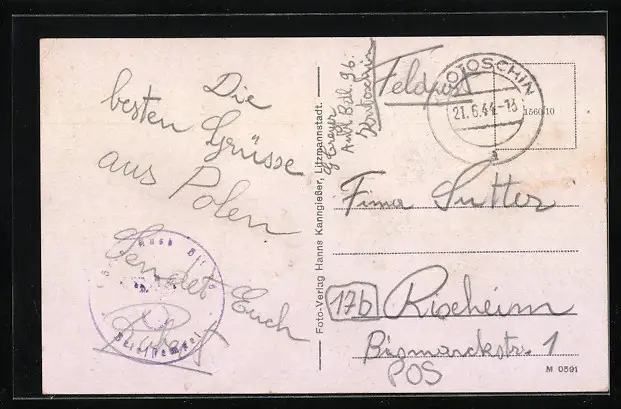 Die
besten Grüsse
aus Polen
sendet Euch
Briefstempel
Foto-Verlag Hanns Kanngießer, Litzmannstadt.
Krotoschin
Feldpost
OTOSCHIN
21.6.44-13
a
1560/10
Firma Sutter
17b
Rixheim
Bismarckstr. 1
POS
M 0591